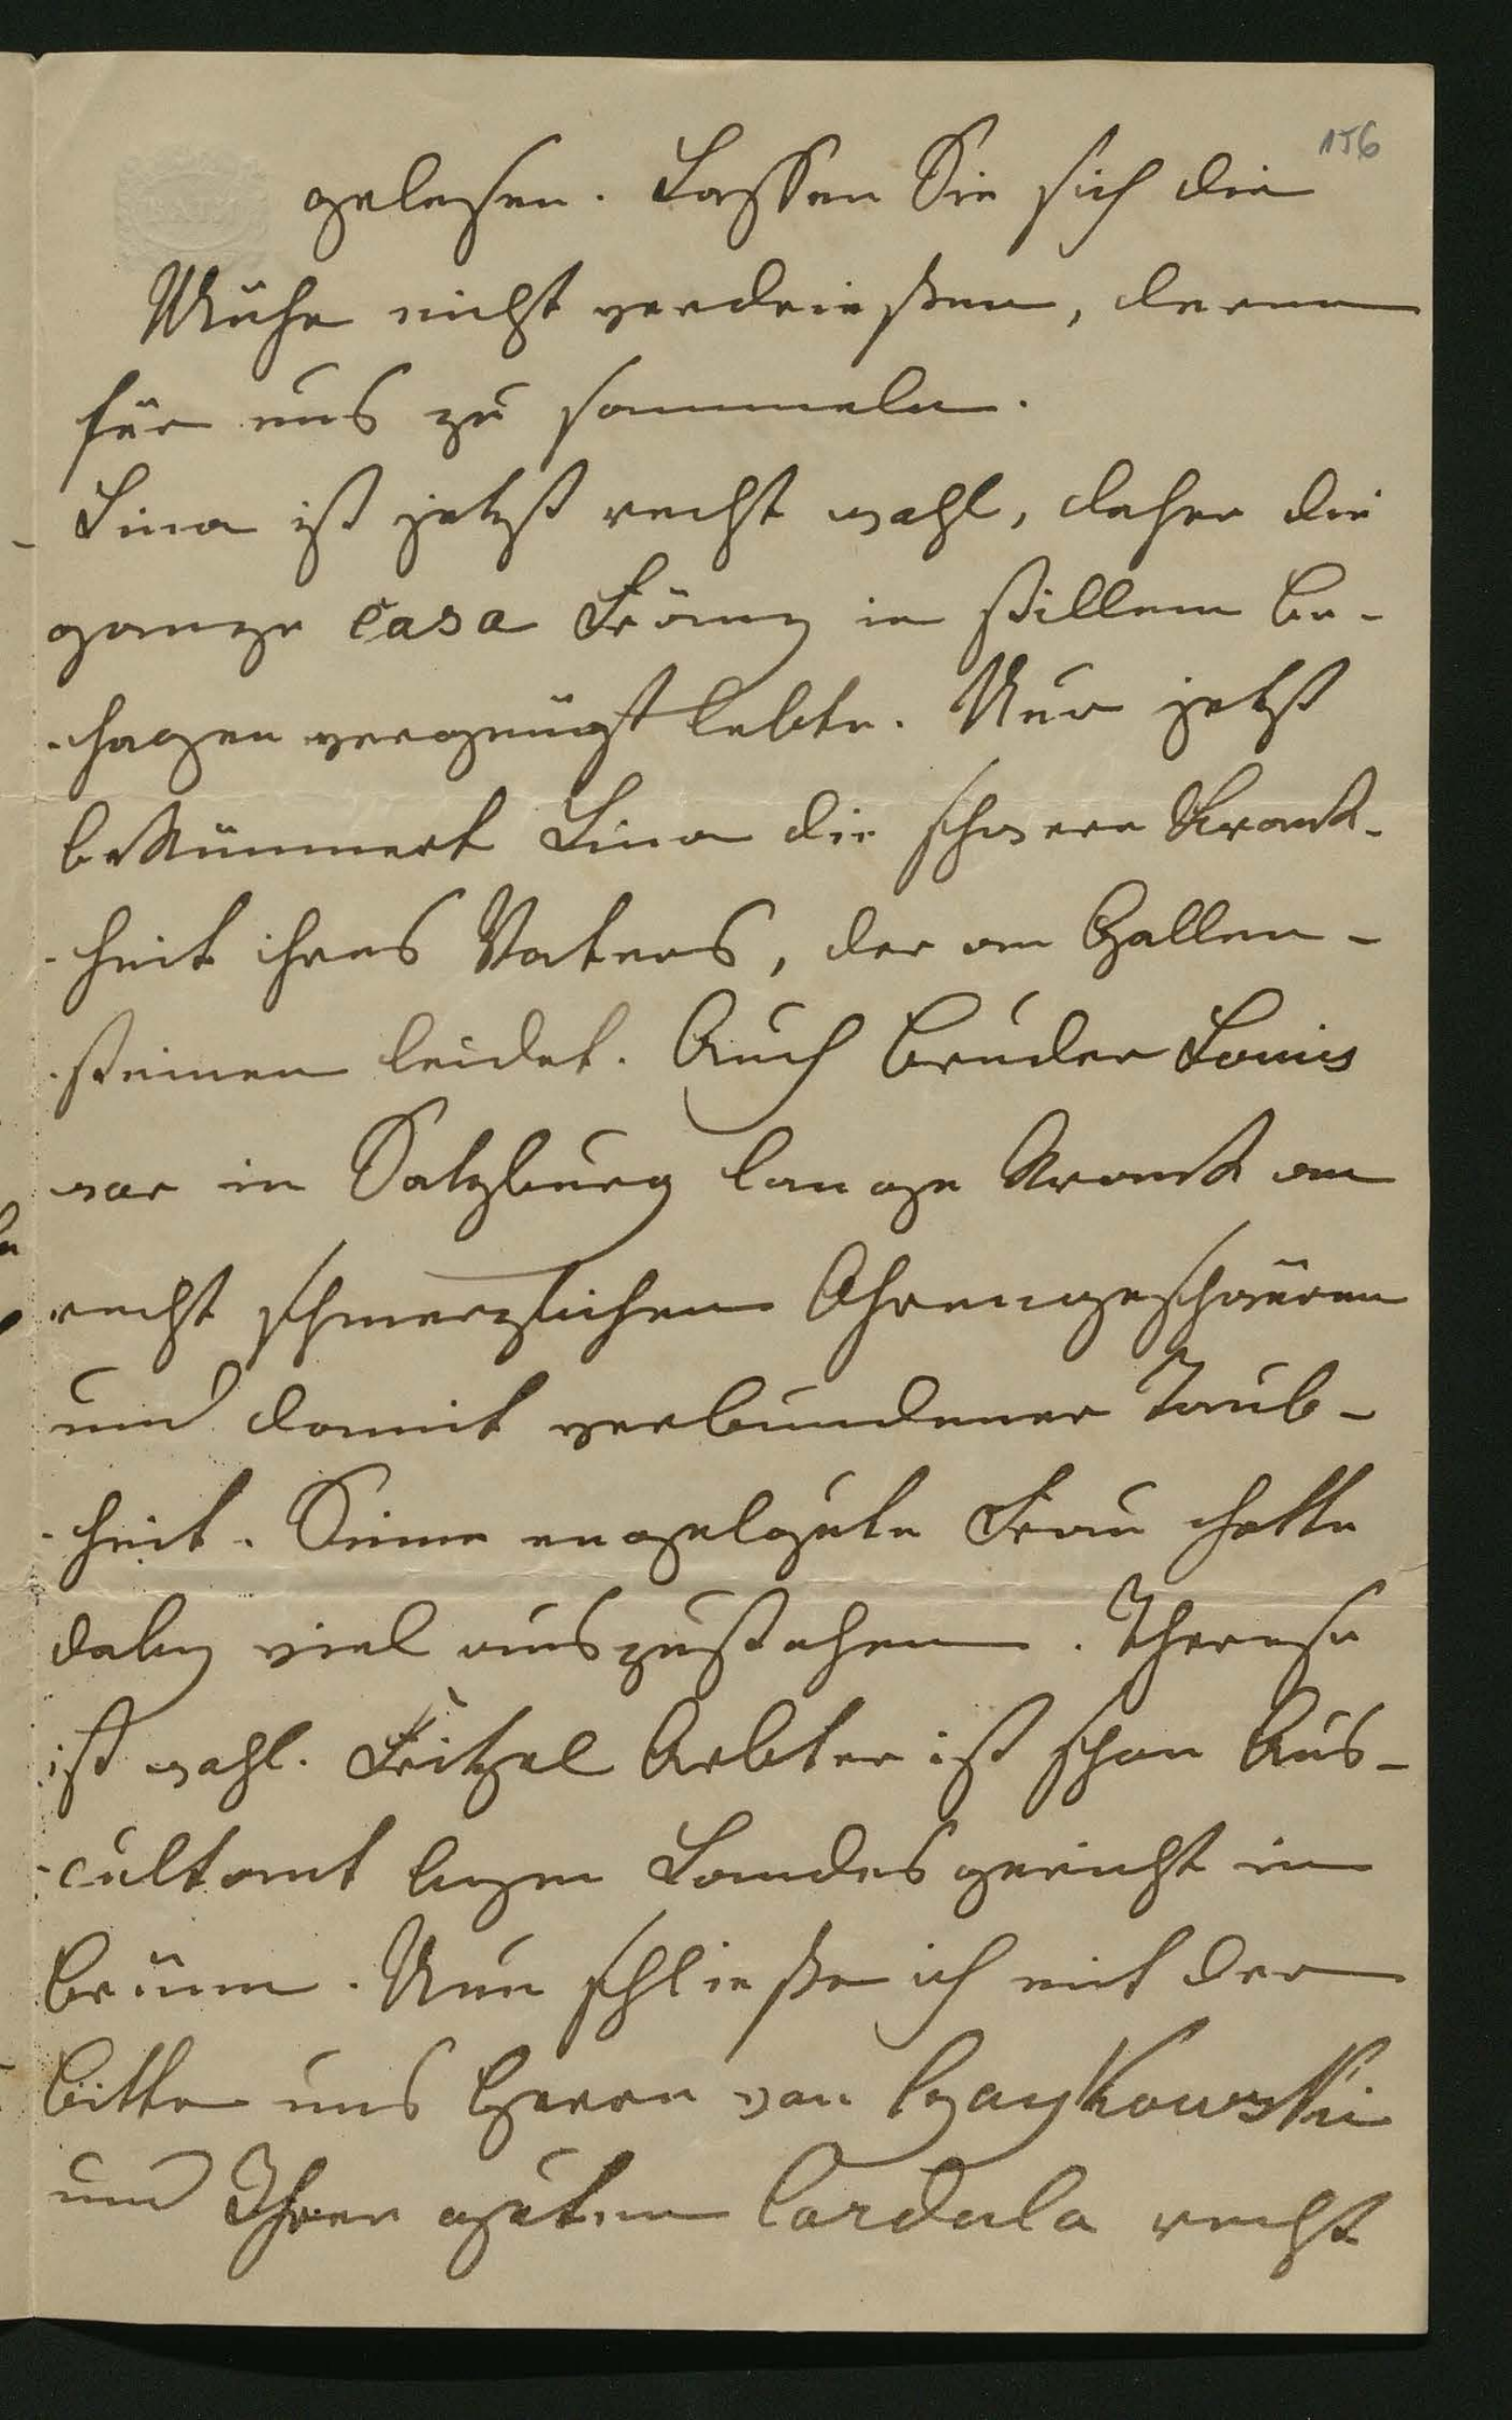 156
gelesen. Lassen Sie sich die
Mühe nicht verdrießen, deren
für uns zu sammeln.
Lina ist jetzt recht wohl, daher die
ganze Casa Fröny in stillem Be-
-hagen vergnügt lebte. Nur jetzt
bekümmert Lina die schwere Krank-
-heit ihres Vaters, der an Gallen-
-steinen leidet. Auch Bruder Louis
war in Salzburg lange krank an
recht schmerzlichen Ohrengeschwüren
und damit verbundener Taub-
-heit. Seine engelgute Frau hatte
dabey viel auszustehen. Therese
ist wohl. Fritzel Arbter ist schon Aus-
-cultant beym Landesgericht in
Brünn. Nun schließe ich mit der
Bitte uns Herrn von Czaykowski
und Ihrer guten Cordula recht